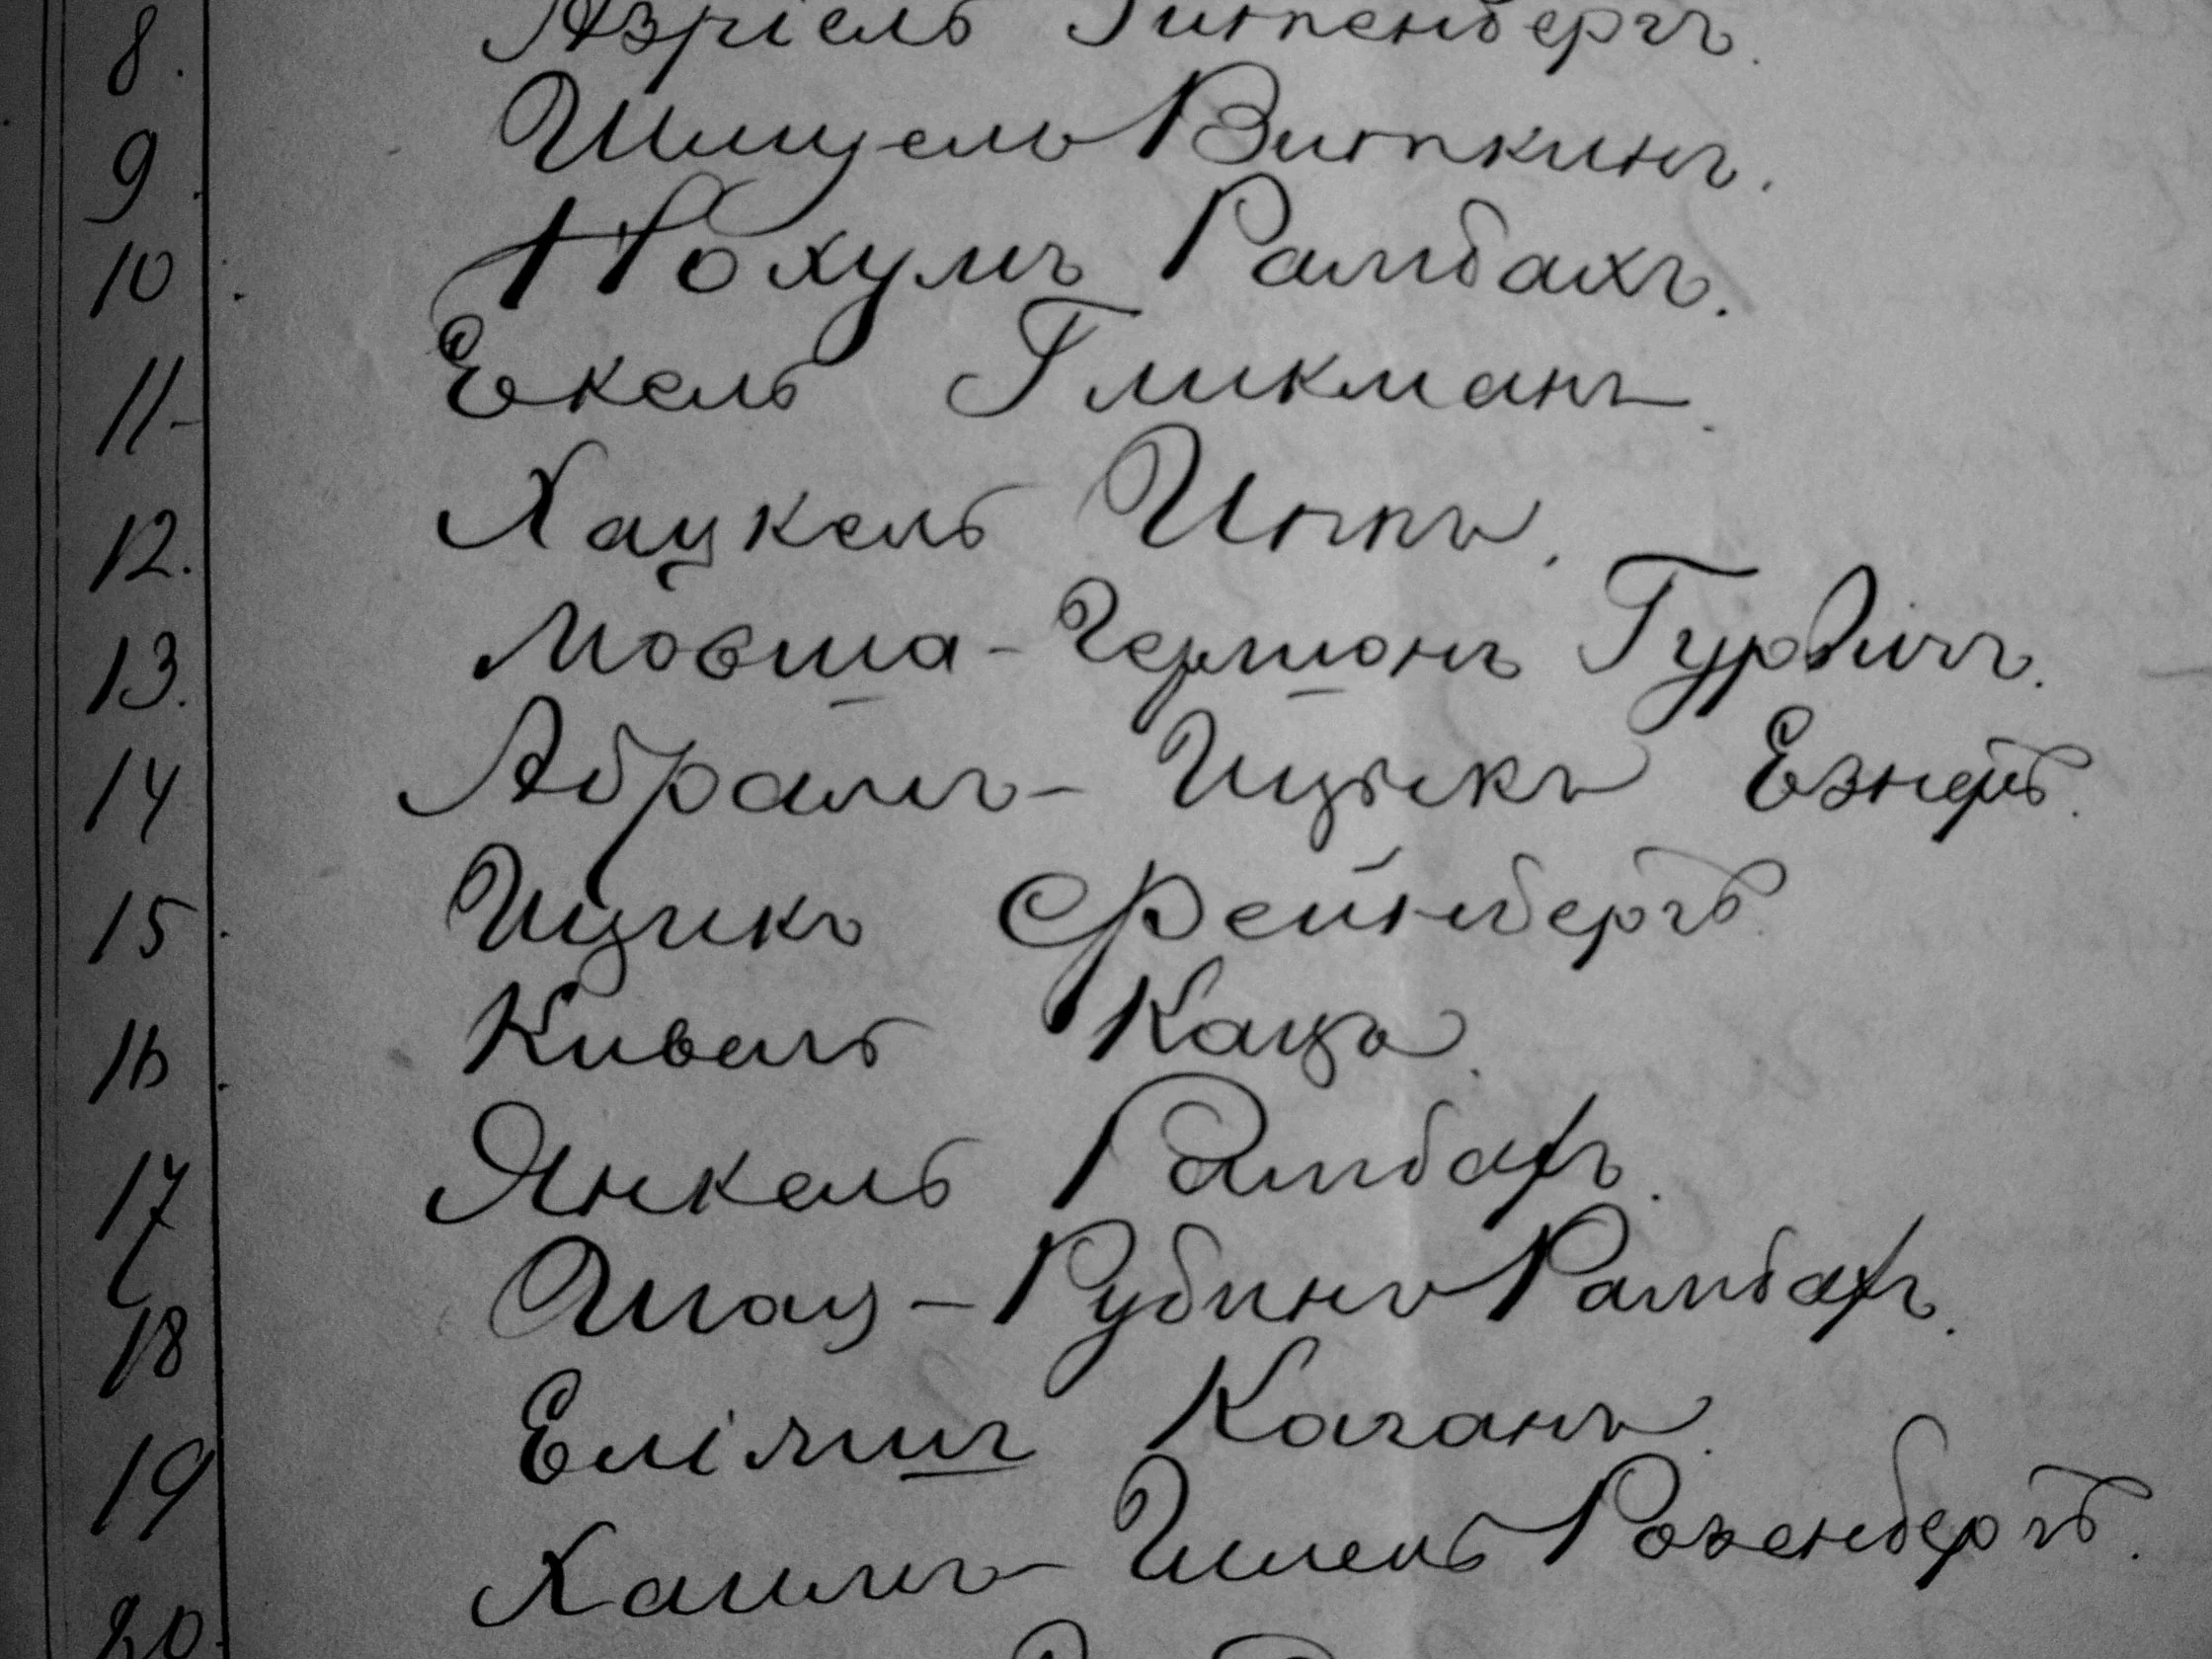 8. Азріель Гитенбергъ.
9. Шмуель Виткинъ.
10. Нохумъ Рамбахъ.
11. Екель Гликманъ.
12. Хацкель Итъ.
13. Мовша-Гершонъ Гурвичъ.
14. Абрамъ-Ицыкъ Езнеръ.
15. Ицикъ Фейнбергъ.
16. Кивель Кацъ.
17. Янкель Рамбахъ.
18. Рубинъ Рамбахъ.
19. Каганъ.
20. Хаимъ- Розенбергъ.